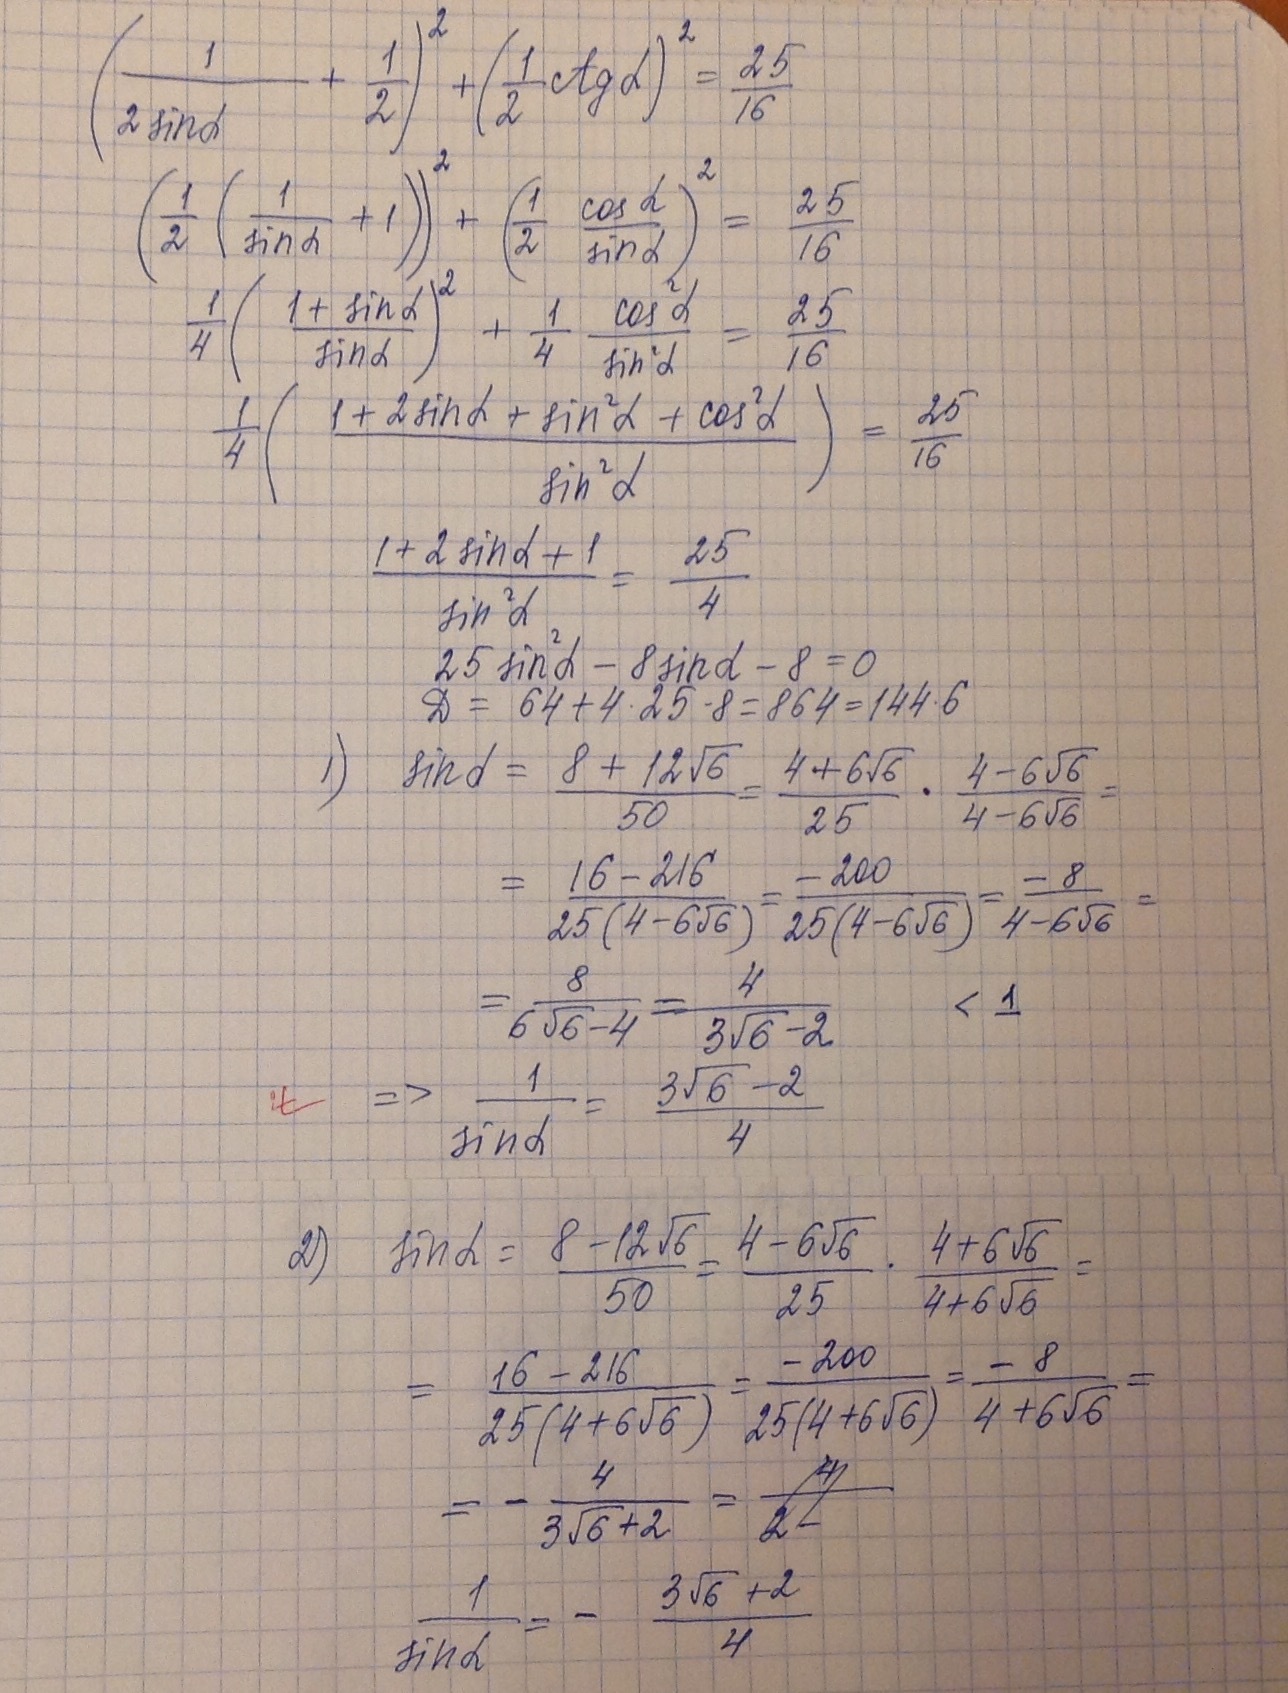 (1/(2 sinα) + 1/2)² + (1/2 ctgα)² = 25/16
(1/2 (1/sinα + 1))² + (1/2 cosα/sinα)² = 25/16
1/4 ((1 + sinα)/sinα)² + 1/4 cos²α/sin²α = 25/16
1/4 ((1 + 2sinα + sin²α + cos²α)/sin²α) = 25/16
(1 + 2sinα + 1)/sin²α = 25/4
25 sin²α - 8sinα - 8 = 0
D = 64 + 4·25·8 = 864 = 144·6
1) sinα = (8 + 12√6)/50 = (4 + 6√6)/25 · (4 - 6√6)/(4 - 6√6) =
= (16 - 216)/(25(4 - 6√6)) = -200/(25(4 - 6√6)) = -8/(4 - 6√6) =
= 8/(6√6 - 4) = 4/(3√6 - 2) < 1
=> 1/sinα = (3√6 - 2)/4
2) sinα = (8 - 12√6)/50 = (4 - 6√6)/25 · (4 + 6√6)/(4 + 6√6) =
= (16 - 216)/(25(4 + 6√6)) = -200/(25(4 + 6√6)) = -8/(4 + 6√6) =
= - 4/(3√6 + 2) = 4/(2 -
1/sinα = - (3√6 + 2)/4